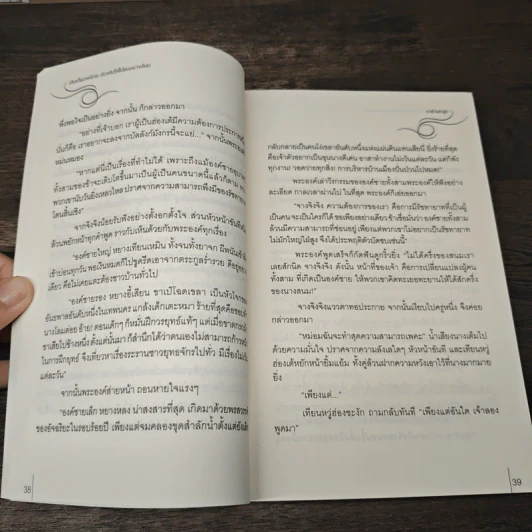 พึงพอใจเป็นอย่างยิ่ง จากนั้น ก็กล่าวออกมา
"อย่างที่เจ้าบอก เราผู้เป็นฮ่องเต้มีความต้องการประการ
นั่นก็คือ เราอยากจะลงจากบัลลังก์มังกรนี้จะแย่..." จากนั้นพระองค์
หม่นหมอง
"หากแต่นี่เป็นเรื่องที่ทำไม่ได้ เพราะถึงแม้องค์ชาย
ทั้งสามของข้าจะเติบโตขึ้นมาเป็นผู้เป็นคนขนาดนี้แล้วก็ตาม
พวกเขานับวันยิ่งเหลวไหล ปราศจากความสามารถพึงมีของรัชทายาท
โดนสิ้นเชิง"
จากจิงจิงน้อยรับฟังอย่างตั้งอกตั้งใจ ส่วนหัวหน้าขันที
ล้วนพยักหน้าทุกคำพูด ราวกับเห็นด้วยกับพระองค์ทุกเรื่อง
"องค์ชายใหญ่ หยางเทียนเหมิน ทั้งจนทั้งยาจก มีพนัน
เช้าบ่อนทุกวัน พอเงินหมดก็ไปขูดรีดเอาจากตระกูลร่ำรวย
เดียว คือไม่เคยแตะต้องชาวบ้านทั่วไป
"องค์ชายรอง หยางอี้เสียน ขาเป๋โฉดเขลา เป็นหัวโจก
อันธพาลอันดับหนึ่งในเทพนคร แกล้งเด็กเตะหมา ร้ายที่สุดคือ
นางโลมต่อย อ้าย! ตอนเด็กๆ ก็หมั่นฝึกวรยุทธ์แท้ๆ แต่เมื่อขาด
ขาเสียไปข้างหนึ่ง ตั้งแต่นั้นมา ก็สำนึกได้ว่าตนเองไม่สามารถก้าว
ในการฝึกยุทธ์ จึงเที่ยวหาเรื่องระรานชาวยุทธจักรไปทั่ว มีเรื่องไม่
แต่ละวัน"
จากนั้นพระองค์ส่ายหน้า ถอนหายใจแรงๆ
"องค์ชายเล็ก หยางหลง น่าสงสารที่สุด เกิดมาด้วยพรสวรรค์
ของอัจฉริยะในรอบร้อยปี เพียงแต่จมคลองขุดสำลักน้ำตั้งแต่ยังเล็ก
38
กลับกลายเป็นคนโง่เขลาอันดับหนึ่งแห่งแผ่นดินแทนเสียนี่ ยิ่งร้ายที่สุด
คือเจ้าตัวอยากเป็นขุนนางดีเด่น อาสาทำงานไม่เว้นแต่ละวัน แต่ก็พัง
ทุกงาน! วอดวายทุกสิ่ง! การบริหารบ้านเมืองป่นเป็นปี้ไปหมด!"
พระองค์เล่าวีรกรรมขององค์ชายทั้งสามพระองค์ให้ฟังอย่าง
ละเอียด กาลเวลาผ่านไป ในที่สุด พระองค์ก็เอ่ยออกมา
"จางจิงจิง ความต้องการของเรา คือการมีรัชทายาทที่เป็นผู้
เป็นคน จะเป็นใครก็ได้ ขอเพียงอย่างเดียว ข้าเชื่อมั่นว่า องค์ชายทั้งสาม
ล้วนมีความสามารถที่ซ่อนอยู่ เพียงแต่พวกเขาไม่อยากเป็นรัชทายาท
ไม่มักใหญ่ใฝ่สูง จึงได้ประพฤติตัวบัดซบเช่นนี้"
พระองค์พูดเสร็จก็กัดฟันดูกริ้วยิ่ง "ไม่ได้ครึ่งของเสนมเรา
เลยสักนิด จางจิงจิง ดังนั้น หน้าที่ของเจ้า คือการเปลี่ยนแปลงผู้คน
ทั้งสาม ที่เกิดเป็นองค์ชาย ให้พวกเขาคิดทะเยอทะยานให้ได้สักครึ่ง
ของนางสนม!"
จางจิงจิงแววตาทอประกาย จากนั้นเงียบไปครู่หนึ่ง จึงค่อย
กล่าวออกมา
"หม่อมฉันจะทำสุดความสามารถเพคะ" น้ำเสียงนางเต็มไป
ด้วยความมั่นใจ ปราศจากความลังเลใดๆ หัวหน้าขันที และเทียนหวู่
ฮ่องเต้หยักหน้ายิ้มแย้ม ทั้งคู่ล้วนฝากความหวังเอาไว้ที่นางมากมาย
ยิ่ง
"เพียงแต่..."
เทียนหวู่ฮ่องชะงัก ถามกลับทันที "เพียงแต่อันใด เจ้าลอง
พูดมา"
39